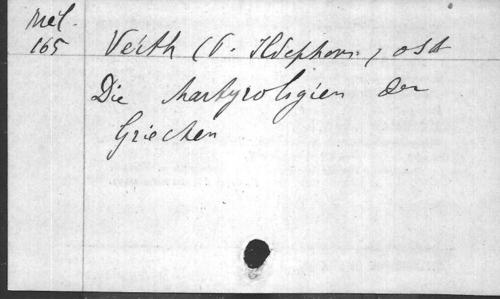 Mél.
165
Veith (P. Ildephons), OSB
Die Martyrologien der
Griechen